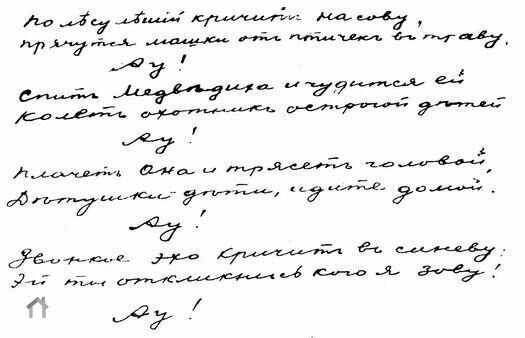 По лѣсу лѣшій кричитъ на сову,
прячутся мошки отъ птичекъ въ траву.
Ау!
Спитъ медвѣдиха и чудится ей
Колетъ охотникъ острогой дѣтей
Ау!
Плачетъ она и трясетъ головой,
Дѣтушки дѣти, идите домой.
Ау!
Звонкое эхо кричитъ въ синеву:
Эй ты откликнись кого я зову!
Ау!